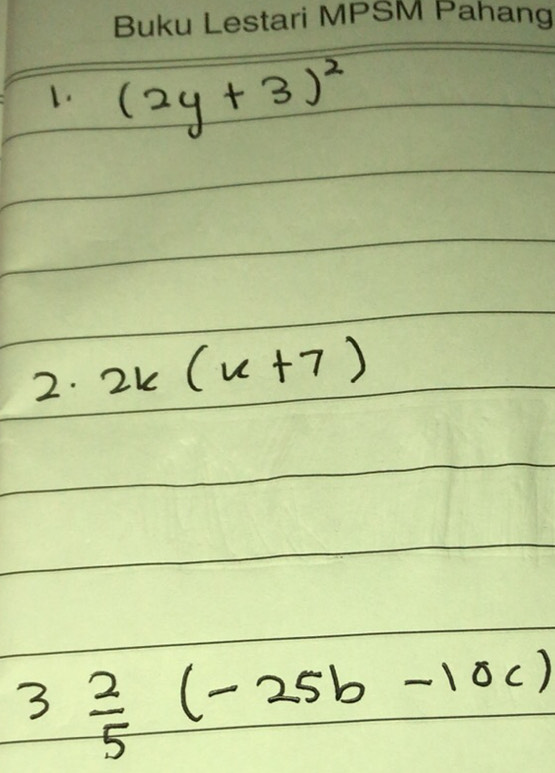 Buku Lestari MPSM Pahang
1. (2y + 3)²
2. 2k (k + 7)
3 2/5 (-25b - 10c)